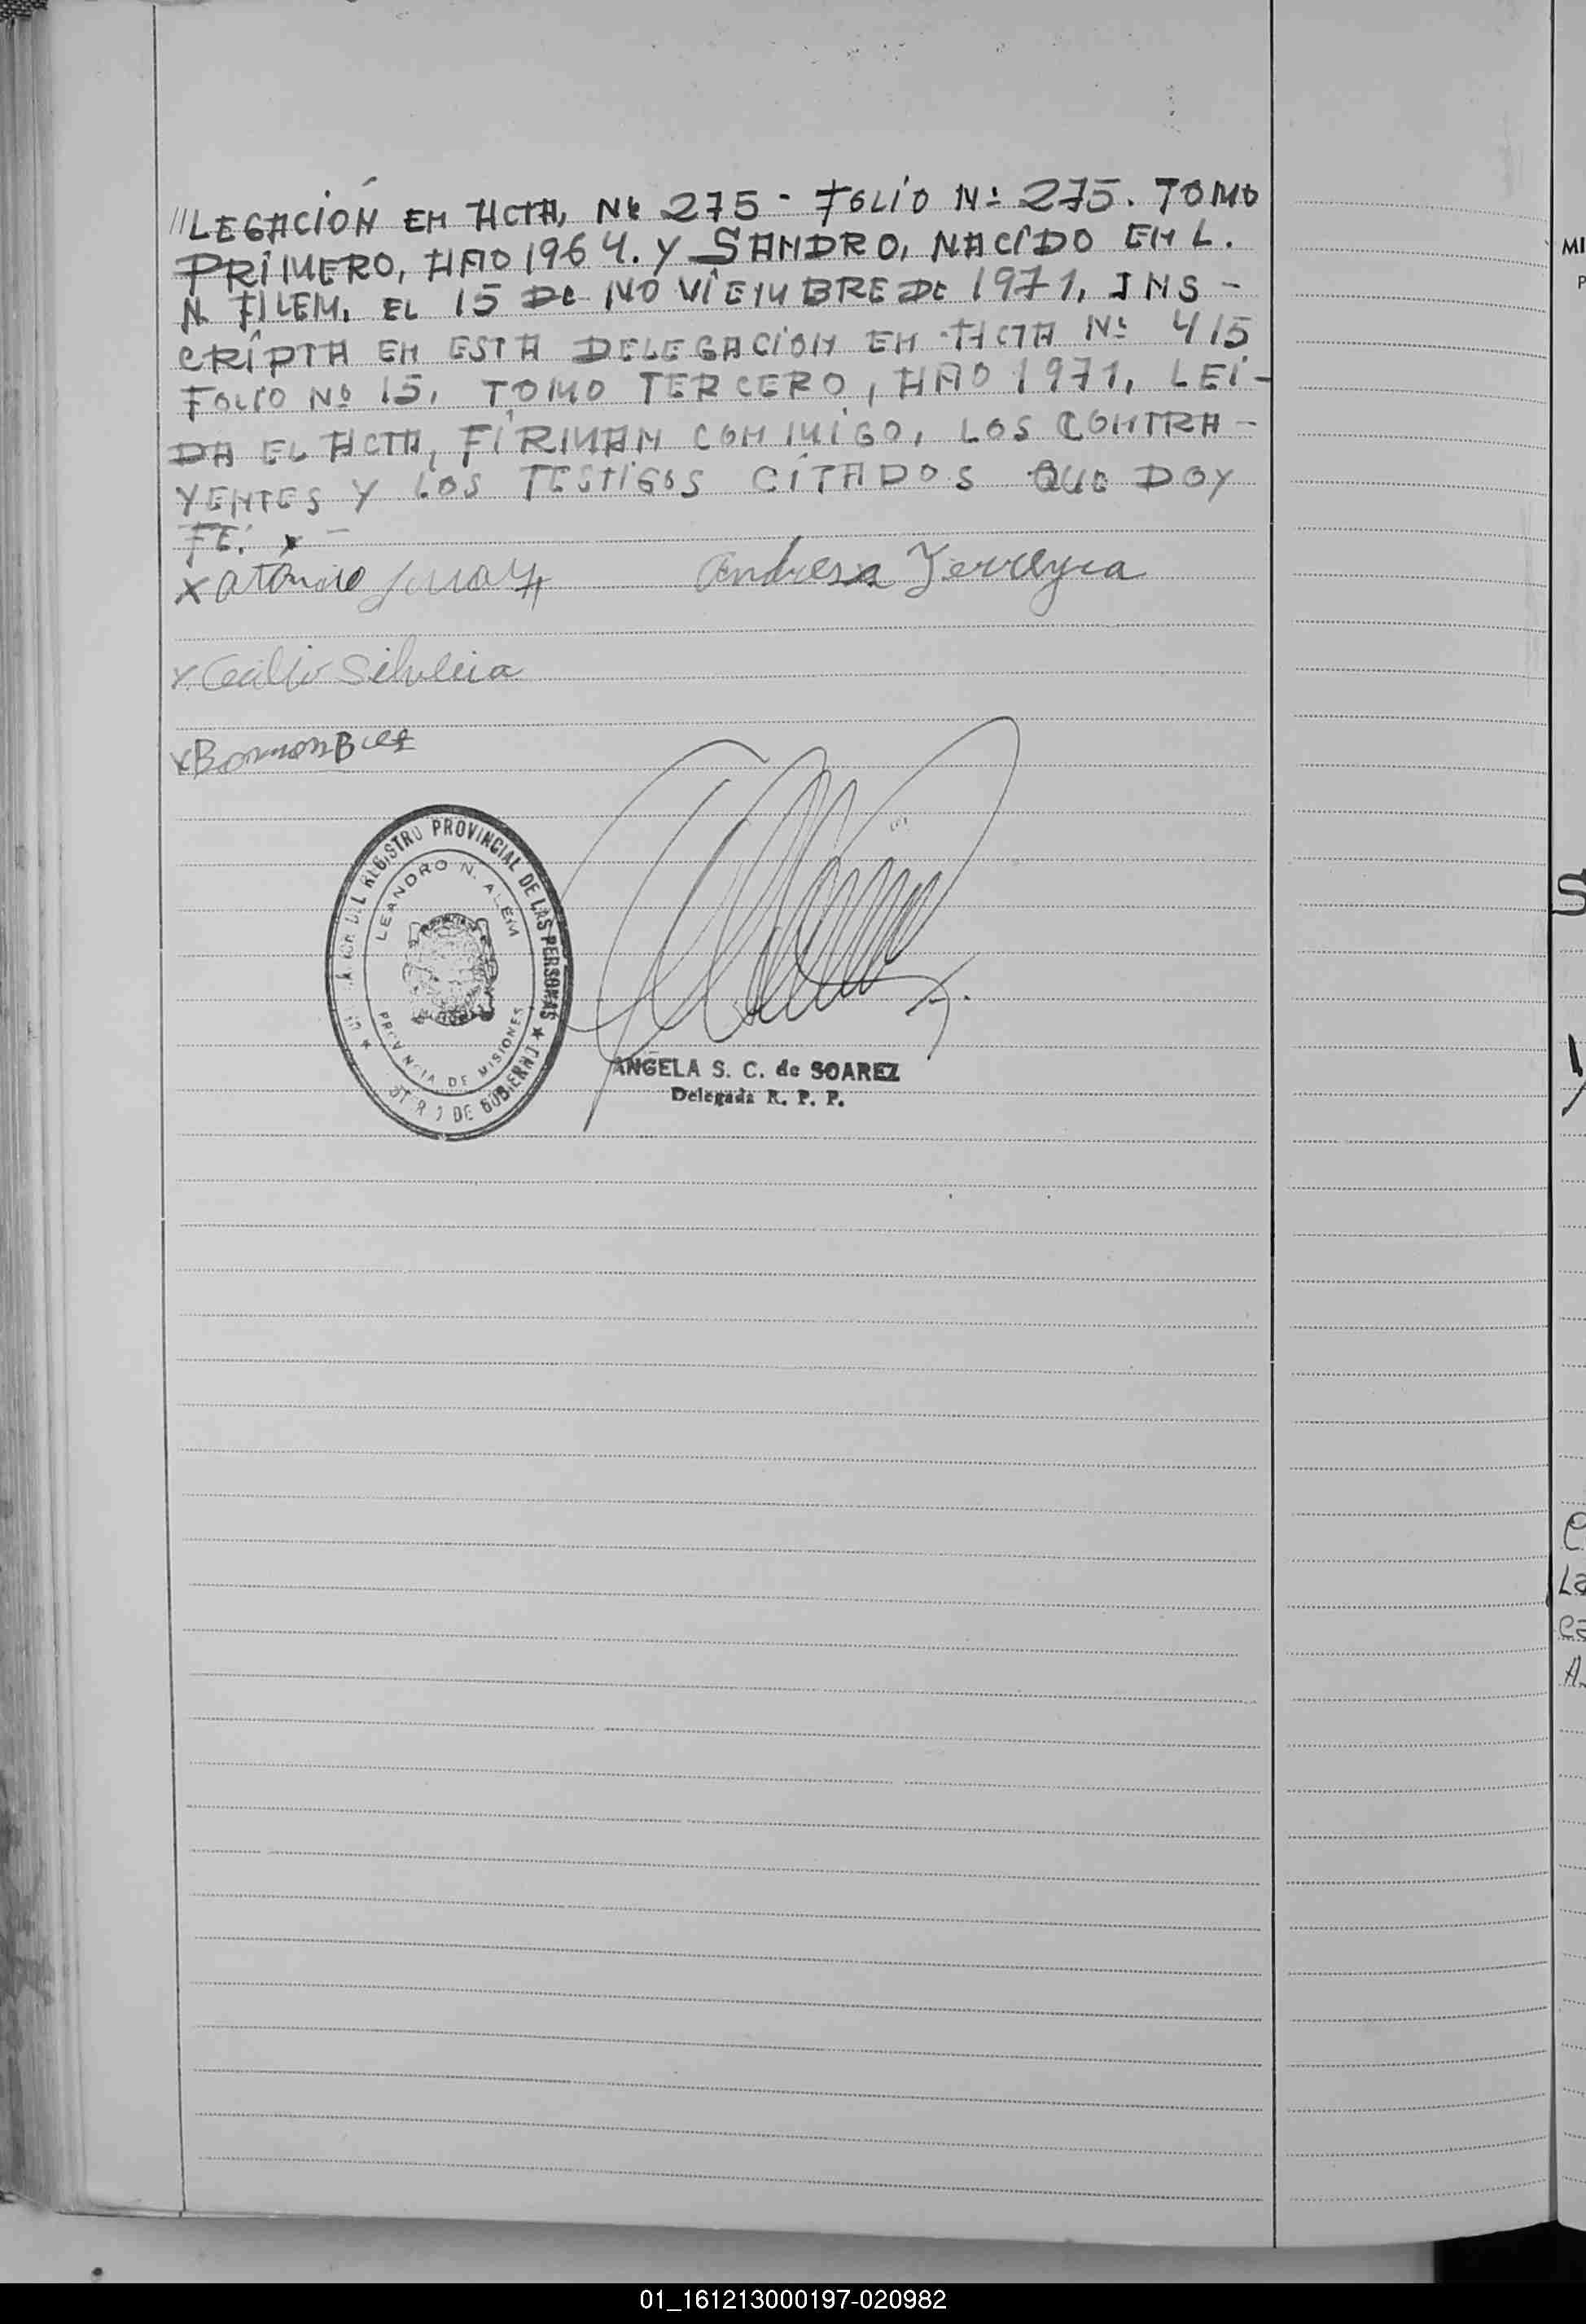 ///LEGACIÓN EN ACTA, Nº 275 - FOLIO Nº 275. TOMO
PRIMERO, AÑO 1964. Y SANDRO, NACIDO EN L.
N. ALEM, EL 15 DE NOVIEMBRE DE 1971, INS-
CRIPTA EN ESTA DELEGACION EN ACTA Nº 415
FOLIO Nº 15, TOMO TERCERO, AÑO 1971, LEI-
DA EL ACTA, FIRMAN CONMIGO, LOS CONTRA-
YENTES Y LOS TESTIGOS CITADOS QUE DOY
FE. x -
x
Andresa Ferreyra
x Silveira
x
REGISTRO PROVINCIAL DE LAS PERSONAS ★
LEANDRO N. ALEM
PROVINCIA DE MISIONES
DE GOBIERNO
ANGELA S. C. de SOAREZ
Delegada R. P. P.
MI
P
S
C
La
ca
A
01_161213000197-020982